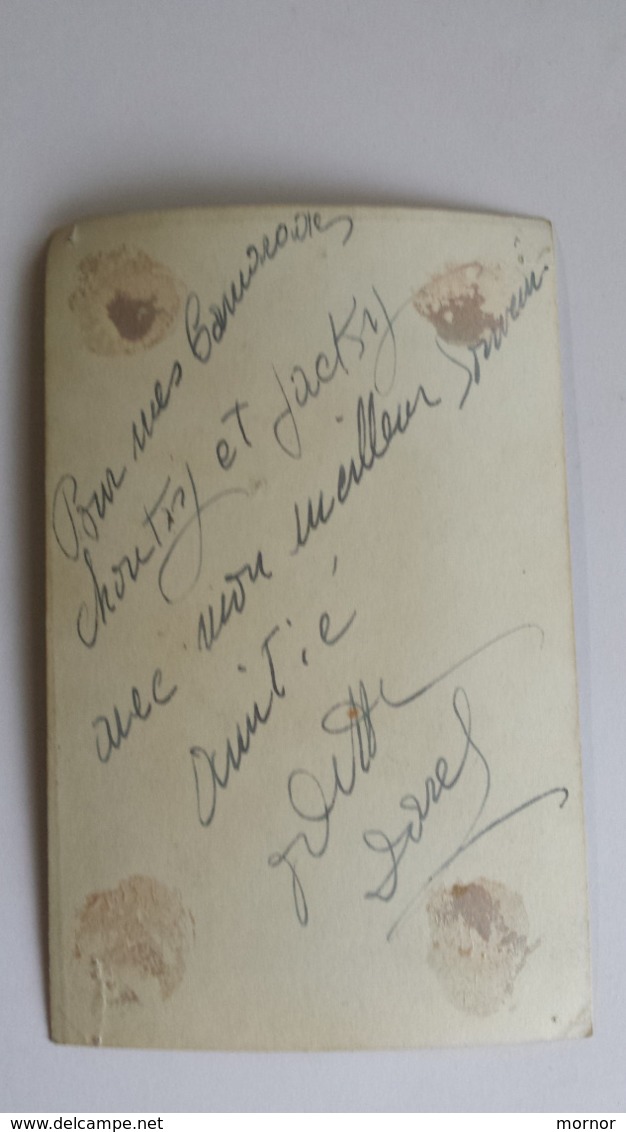 Pour mes Camarades
et Jacky
avec mon meilleur Souvenir
Amitié
Odette
Darel
delcampe.net
mornor